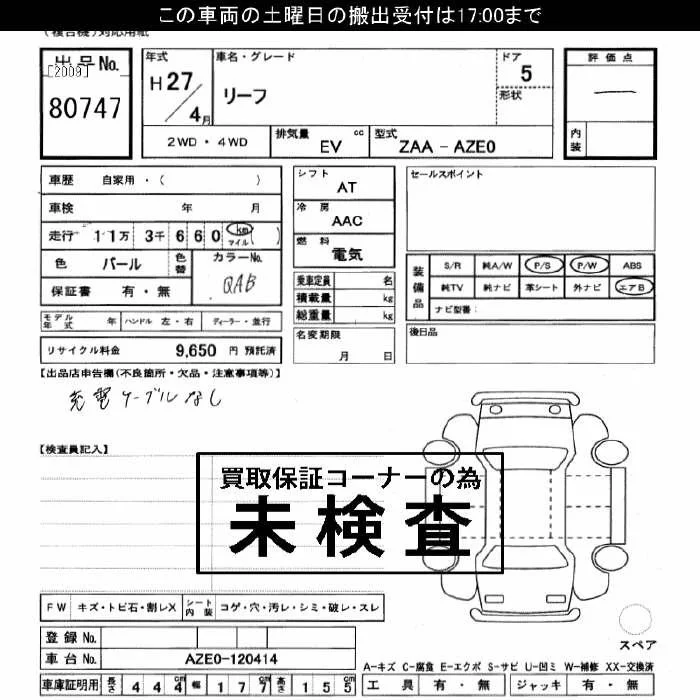 この車両の土曜日の搬出受付は17:00まで
(複合機)対応用紙
出品No. [2009] 80747
年式 H27/4月
車名・グレード リーフ
ドア 5
形状
評価点 ―
内装
2WD・4WD
排気量 cc EV
型式 ZAA - AZE0
車歴 自家用・( )
車検 年 月
走行 11万 3千 6 6 0 km マイル ( )
色 パール 色替 カラーNo. QAB
保証書 有・無
モデル年式 年 ハンドル 左・右 ディーラー・並行
リサイクル料金 9,650 円 預託済
シフト AT
冷房 AAC
燃料 電気
乗車定員 名
積載量 kg
総重量 kg
名変期限 月 日
セールスポイント
装備品 S/R 純A/W P/S P/W ABS
純TV 純ナビ 革シート 外ナビ エアB
ナビ型番:
後日品
【出品店申告欄(不良箇所・欠品・注意事項等)】
充電ケーブルなし
【検査員記入】
買取保証コーナーの為
未検査
FW キズ・トビ石・割レX シート内装 コゲ・穴・汚レ・シミ・破レ・スレ
登録No.
車台No. AZE0-120414
車庫証明用 長さ 4 4 4 cm 幅 1 7 7 cm 高さ 1 5 5 cm
スペア
A-キズ C-腐食 E-エクボ S-サビ U-凹ミ W-補修 XX-交換済
工具 有・無 ジャッキ 有・無